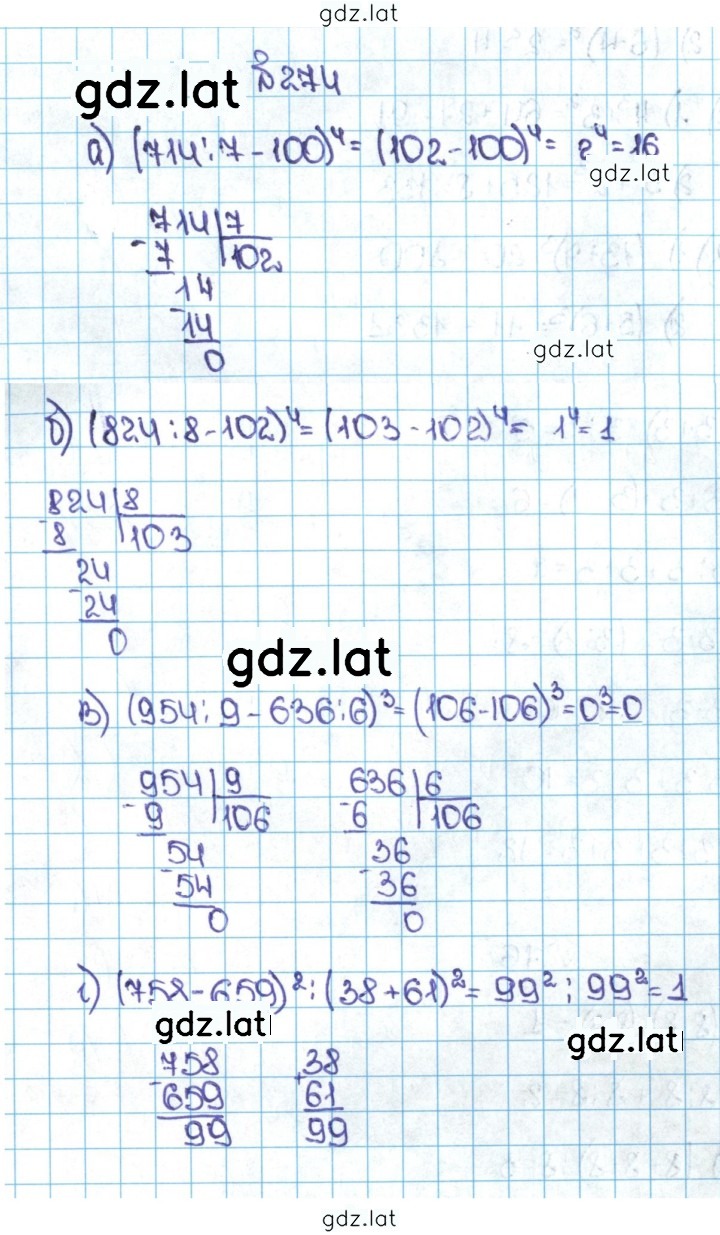 gdz.lat
№ 274
gdz.lat
а) (714:7-100)⁴= (102-100)⁴= 2⁴=16
gdz.lat
714|7
-7 |102
14
-14
0
gdz.lat
б) (824:8-102)⁴= (103-102)⁴= 1⁴=1
824|8
-8 |103
24
-24
0
gdz.lat
в) (954:9-636:6)³=(106-106)³=0³=0
954|9 636|6
-9 |106 -6 |106
54 36
-54 -36
0 0
г) (758-659)²:(38+61)²= 99²:99²=1
gdz.lat
gdz.lat
-758 +38
659 61
99 99
gdz.lat